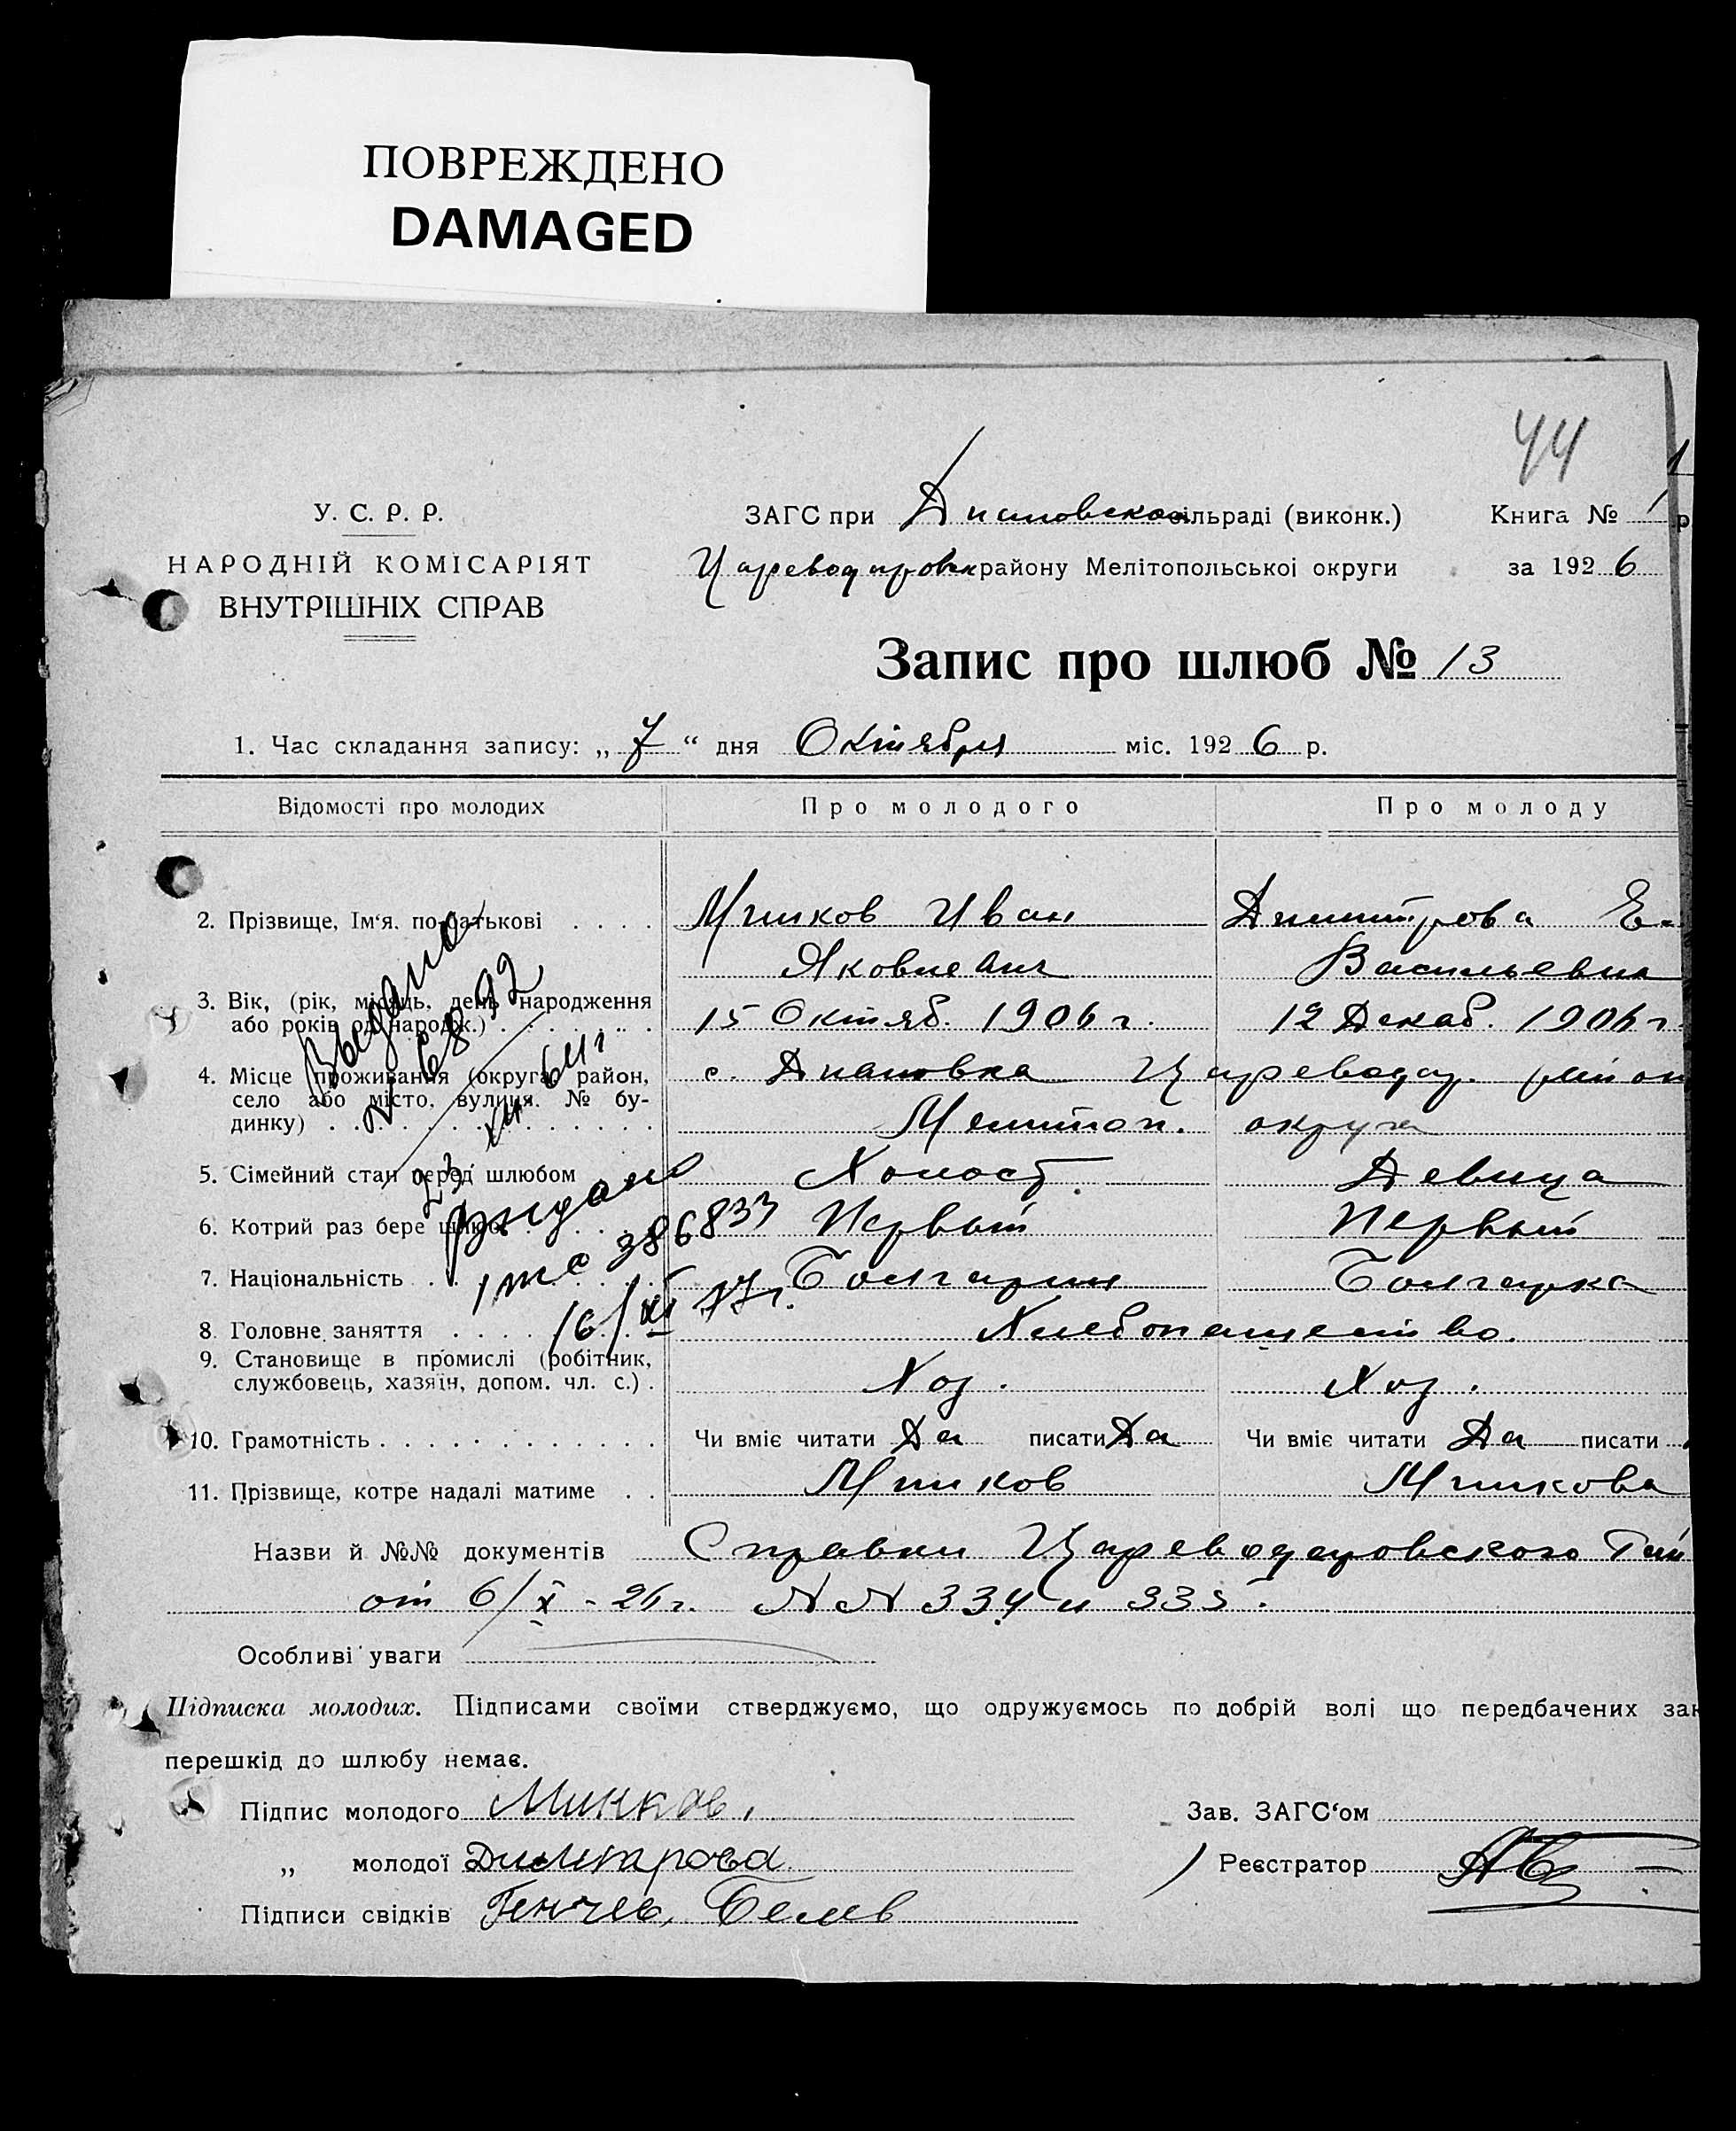 ПОВРЕЖДЕНО
DAMAGED
44
У. С. Р. Р.
НАРОДНІЙ КОМІСАРІЯТ
ВНУТРІШНІХ СПРАВ
ЗАГС при Диановской сільраді (виконк.)
Цареводаровск району Мелітопольської округи
Книга № 1
за 1926
Запис про шлюб № 13
1. Час складання запису: „7“ дня Октября міс. 1926 р.
Відомості про молодих Про молодого Про молоду
2. Прізвище, Ім'я. по-батькові . . . . Минков Иван Димитрова Ек
Яковлевич Васильевна
3. Вік, (рік, місяць, день народження
або років од народж.) . . . . . . . 15 Октяб. 1906 г. 12 Декаб. 1906 г.
4. Місце проживання (округа, район,
село або місто, вулиця. № бу-
динку) . . . . . . . . . . . . . с. Диановка Цареводар. район
Мелитоп. округа
5. Сімейний стан перед шлюбом Холост. Девица
6. Котрий раз бере шлюб . . . . Первый Первый
7. Національність . . . . . . . Болгарин Болгарка
8. Головне заняття . . . . . . . Хлебопашество.
9. Становище в промислі (робітник,
службовець, хазяїн, допом. чл. с.) . Хоз. Хоз.
10. Грамотність . . . . . . . . . . . . Чи вміє читати Да писати Да Чи вміє читати Да писати
11. Прізвище, котре надалі матиме . . Минков Минкова
Выдано
№ 68 92
23 XII 64 г
Выдано
386833
16/XI 77г.
Назви й №№ документів Справки Цареводаровского Рай
от 6/X - 26 г. №№ 334 и 335.
Особливі уваги
Підписка молодих. Підписами своїми стверджуємо, що одружуємось по добрій волі що передбачених зак
перешкід до шлюбу немає.
Підпис молодого Минков, Зав. ЗАГС'ом
„ молодої Димитрова Реєстратор
Підписи свідків Генчев, Белев